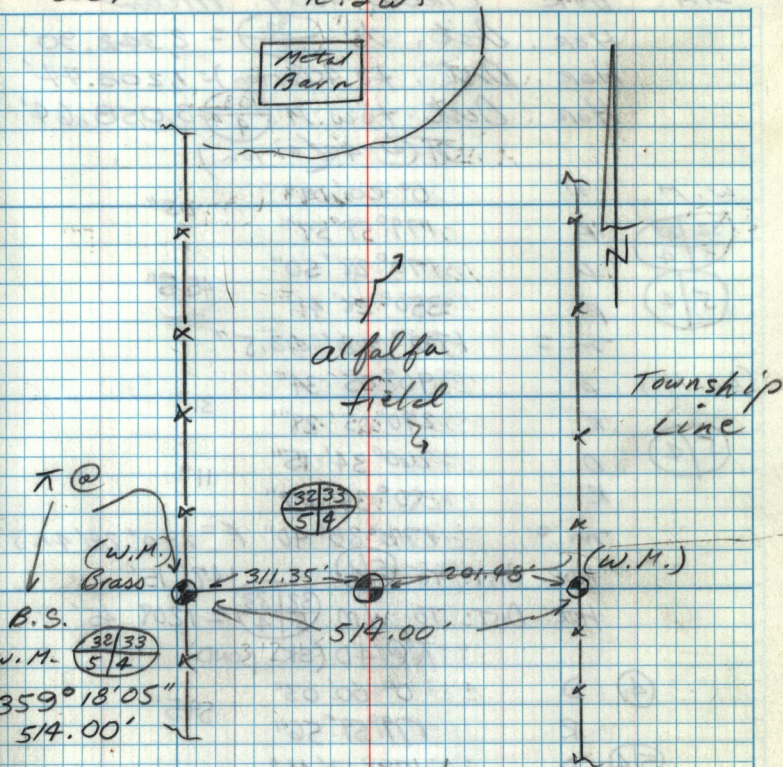 Metal
Barn
N
alfalfa
field
Township
Line
⊼ @
32 33
5 4
(W.M.)
Brass
311.35'
201.98'
(W.M.)
514.00'
B.S.
W.M.
32 33
5 4
359° 18' 05"
514.00'